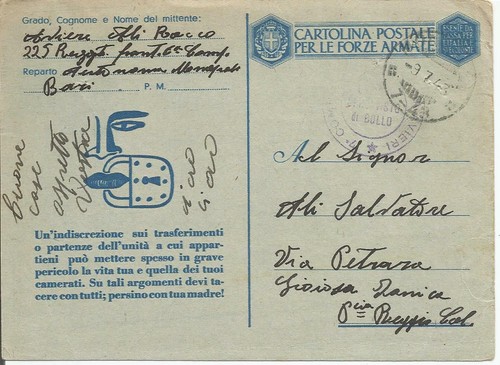 Grado, Cognome e Nome del mittente:
Aviere Alì Rocco
225 Reggt. fant. 6ª Comp.
Reparto Autonoma Monopoli
Bari P. M.
CARTOLINA POSTALE
PER LE FORZE ARMATE
ESENTE DA
TASSA PER
L'ITALIA E
COLONIE
DI BOLLO
Al Signor
Alì Salvatore
Via Petrara
Gioiosa Ionica
Pcia Reggio Cal.
Buone
cose
aspetto
ciao
ciao
Un'indiscrezione sui trasferimenti
o partenze dell'unità a cui appar-
tieni può mettere spesso in grave
pericolo la vita tua e quella dei tuoi
camerati. Su tali argomenti devi ta-
cere con tutti; persino con tua madre!